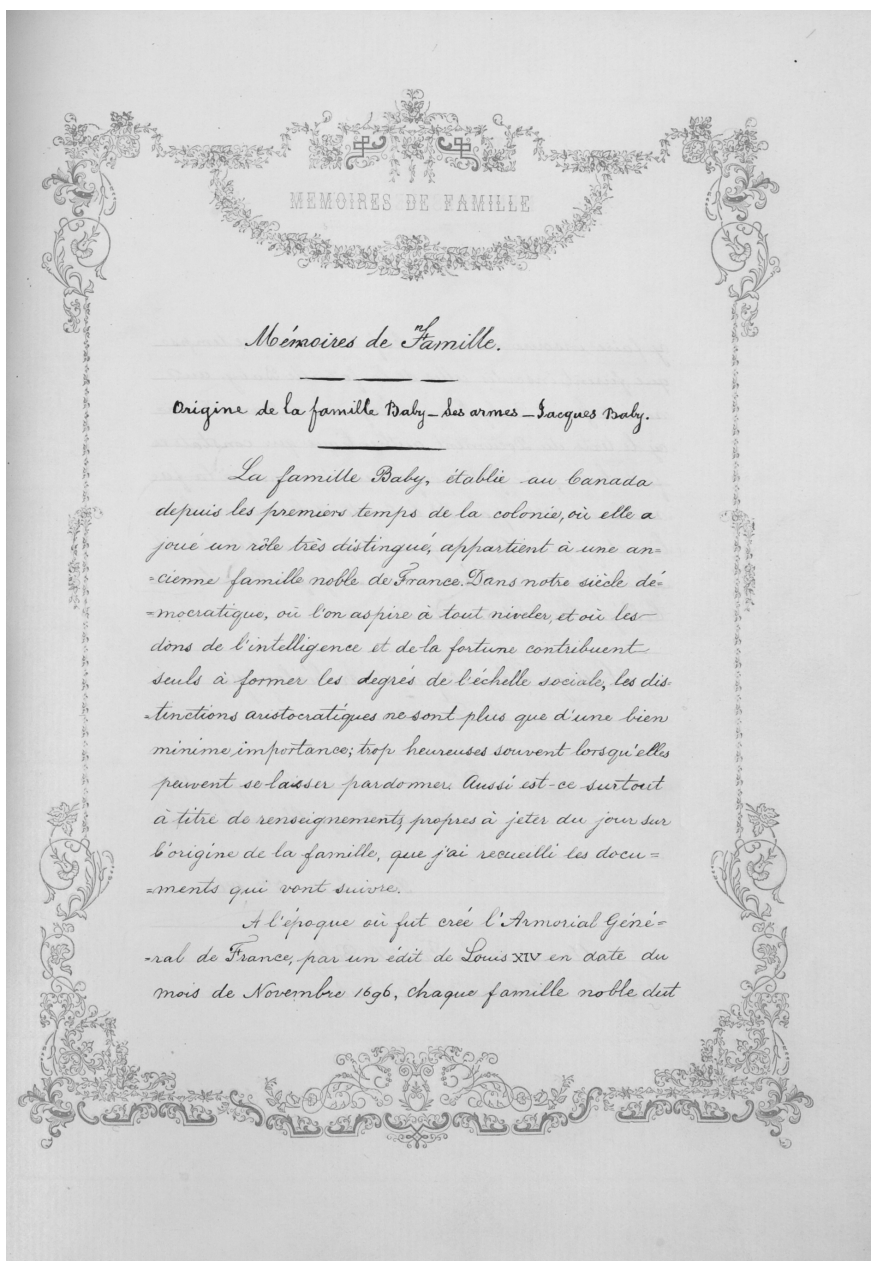 MEMOIRES DE FAMILLE
Mémoires de Famille.
Origine de la famille Baby – Ses armes – Jacques Baby.
La famille Baby, établie au Canada
depuis les premiers temps de la colonie, où elle a
joué un rôle très distingué, appartient à une an=
=cienne famille noble de France. Dans notre siècle dé=
=mocratique, où l'on aspire à tout niveler, et où les
dons de l'intelligence et de la fortune contribuent
seuls à former les degrés de l'échelle sociale, les dis=
=tinctions aristocratiques ne sont plus que d'une bien
minime importance; trop heureuses souvent lorsqu'elles
peuvent se laisser pardonner. Aussi est-ce surtout
à titre de renseignements, propres à jeter du jour sur
l'origine de la famille, que j'ai recueilli les docu=
=ments qui vont suivre.
A l'époque où fut créé l'Armorial Géné=
=ral de France, par un édit de Louis XIV en date du
mois de Novembre 1696, chaque famille noble dut